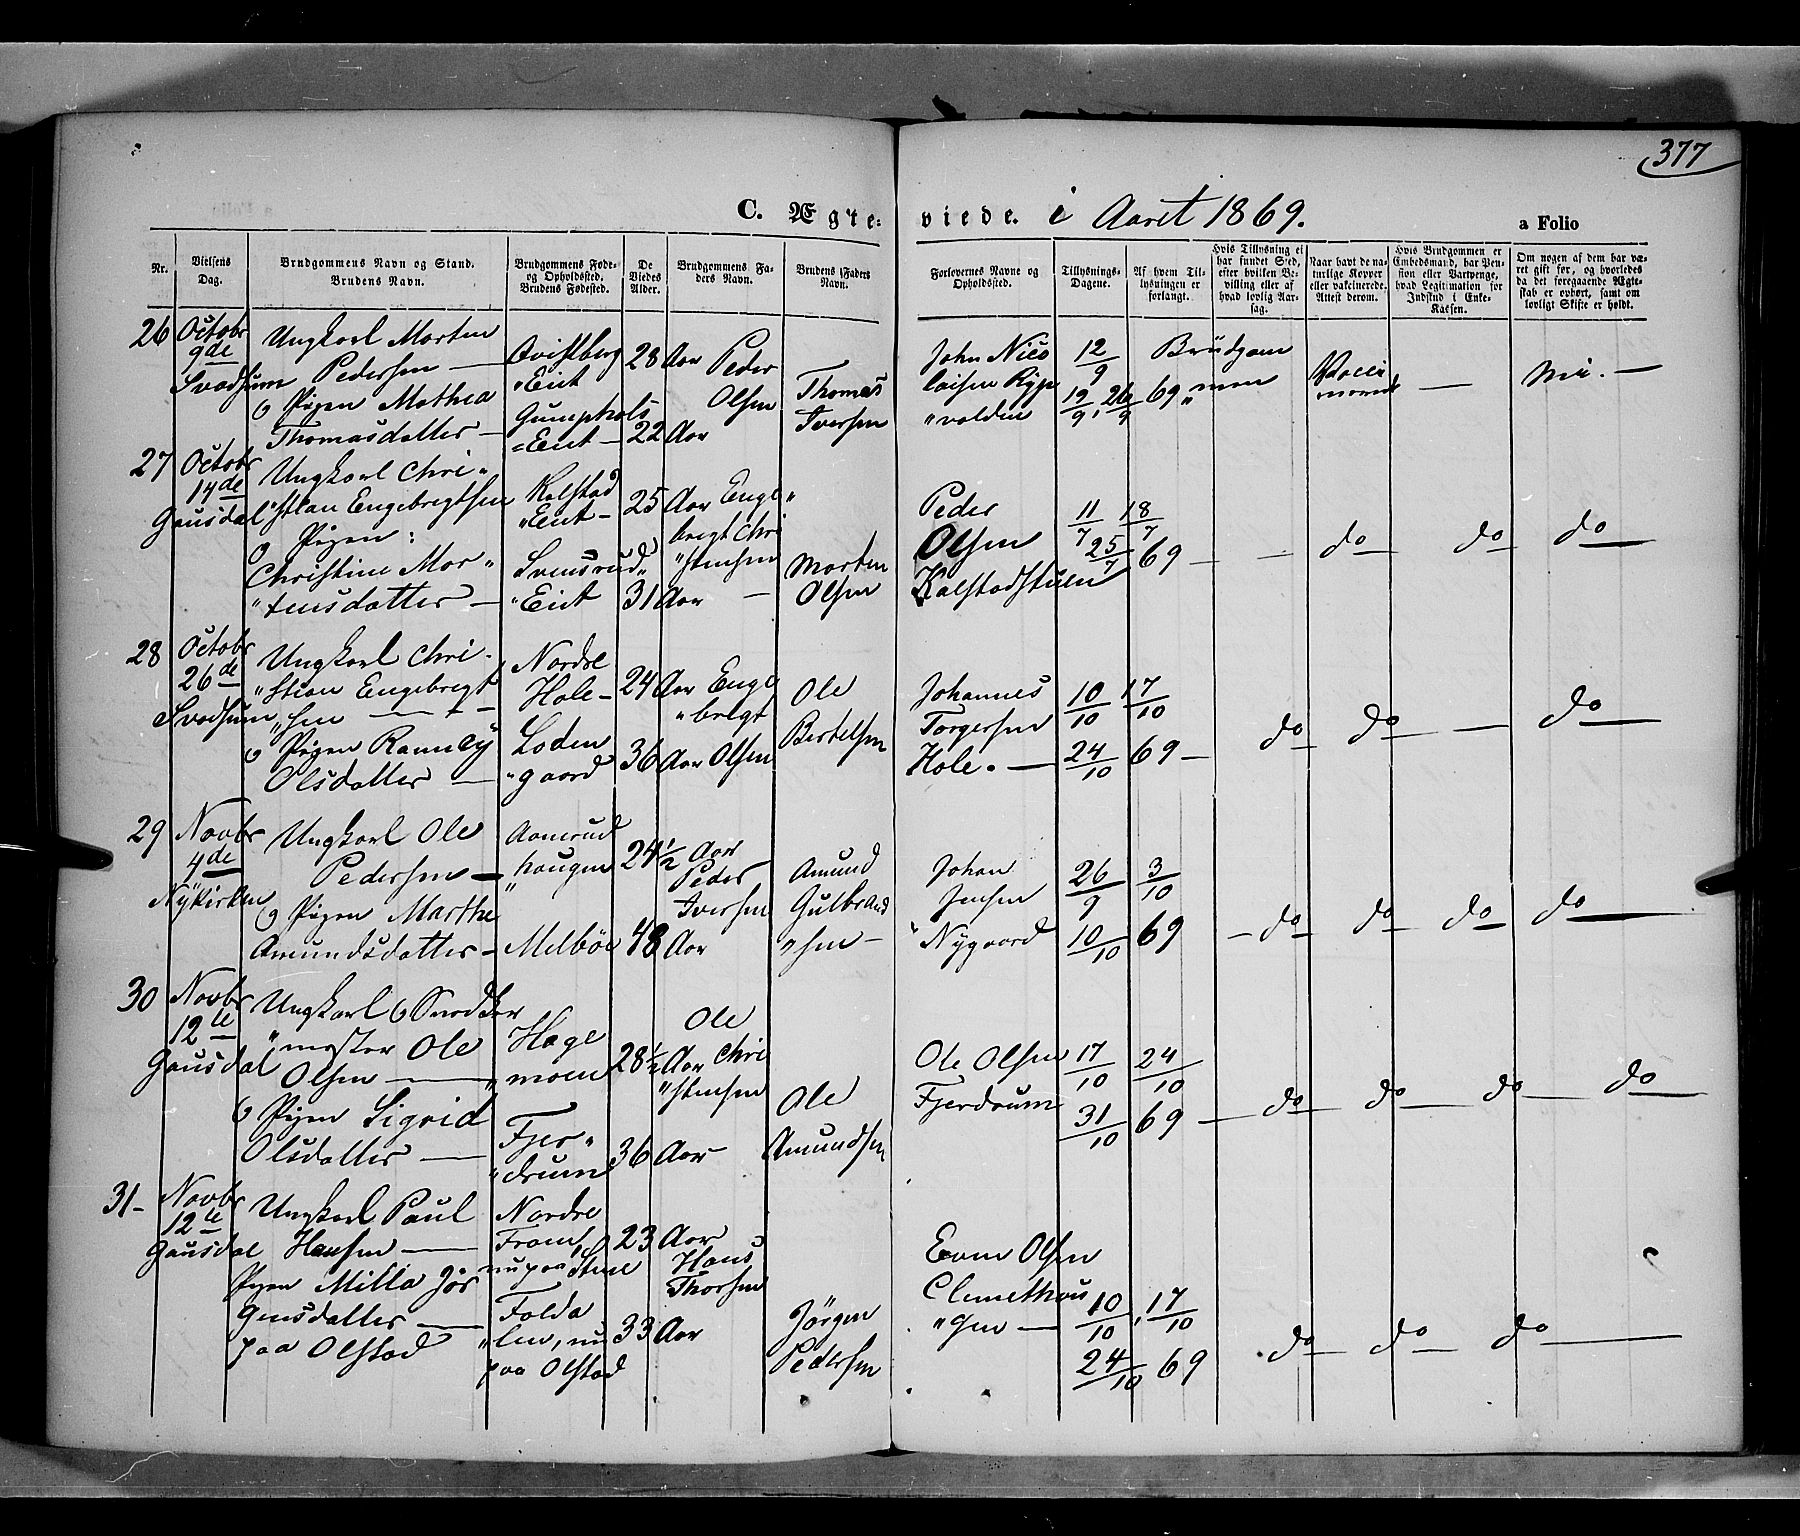 377
C. Ægte-viede. i Aaret 1869.
a Folio
Nr.
Vielsens Dag.
Brudgommens Navn og Stand.
Brudens Navn.
Brudgommens Føde- og Opholdssted.
Brudens Fødested.
De Viedes Alder.
Brudgommens Faders Navn.
Brudens Faders Navn.
Forlovernes Navne og Opholdssted.
Tillysnings-Dagene.
Af hvem Tillysningen er forlangt.
Hvis Tillysning ei har fundet Sted, efter hvilken Bevilling eller af hvad lovlig Aarsag.
Naar havt de naturlige Kopper eller vakcinerede. Attest derom.
Hvis Brudgommen er Embedsmand, har Pension eller Vartpenge, hvad Legitimation for Indskud i Enke-Kassen.
Om nogen af dem har været gift før, og hvorledes da det foregaaende Ægteskab er ophørt, samt om lovligt Skifte er holdt.
26 Octobr 9de Svodsum
Ungkarl Morten
Pedersen —
o Pigen Mathea
Thomasdatter —
Qvistberg
"Eiet 28 Aar
"Eiet — 22 Aar
Peder
Olsen
Thomas
Iversen
John Nico
laisen
"volden
12/9
19/9, 26/9 69
Brudgom
"men
— —
27 Octobr 14de Gausdal
Ungkarl Chri-
"stian Engebregtsen
o Pigen:
Christine Mor-
"tensdatter —
Kalstad
"Eiet — 25 Aar
Svensrud
"Eiet 31 Aar —
Enge"
bregt Chri
"stensen
Morten
Olsen
Peder
Olsen
Kalstadstuen
11/7 18/7
25/7 69 —
— do do do
28 Octobr 26de Svodsum
Ungkarl Chri-
"stian Engebregt
"sen —
o Pigen Ranney
Olsdatter —
Nordre
Hole — 24 Aar
Loden
"gaard 36 Aar
Enge
"bregt
Olsen
Ole
Bertelsen
Johannes
Torgersen
Hole. —
10/10 17/10
24/10 69 —
do do — do
29 Novbr 4de Nykirken
Ungkarl Ole
Pedersen —
o Pigen Marthe
Amundsdatter —
Aamrud
"haugen 24½ Aar
Melböe 48 Aar
Peder
Iversen
Amund
Gulbrand
"sen —
Johan
Jensen
Nygaard
26/9 3/10
10/10 69
— do do do do
30 Novbr 12te Gausdal
Ungkarl o Snedker
"mester Ole
Olsen —
o Pigen Sigrid
Olsdatter —
Hage
"moen 28½ Aar
Fjer"
"drum 36 Aar
Ole
Chri
"stensen
Ole
Amundsen
Ole Olsen
Fjerdrum
17/10 24/10
31/10 69 —
do do do do
31 — Novbr 12te Gausdal
Ungkarl Paul
Hansen —
Pigen Milla Jör
gensdatter —
paa Olstad
Nordre
nu paa 23 Aar
"len, nu 33 Aar
paa Olstad
Hans
Thorsen
Jörgen
Pedersen
Even Olsen
"gen —
10/10, 17/10
24/10 69
do do do